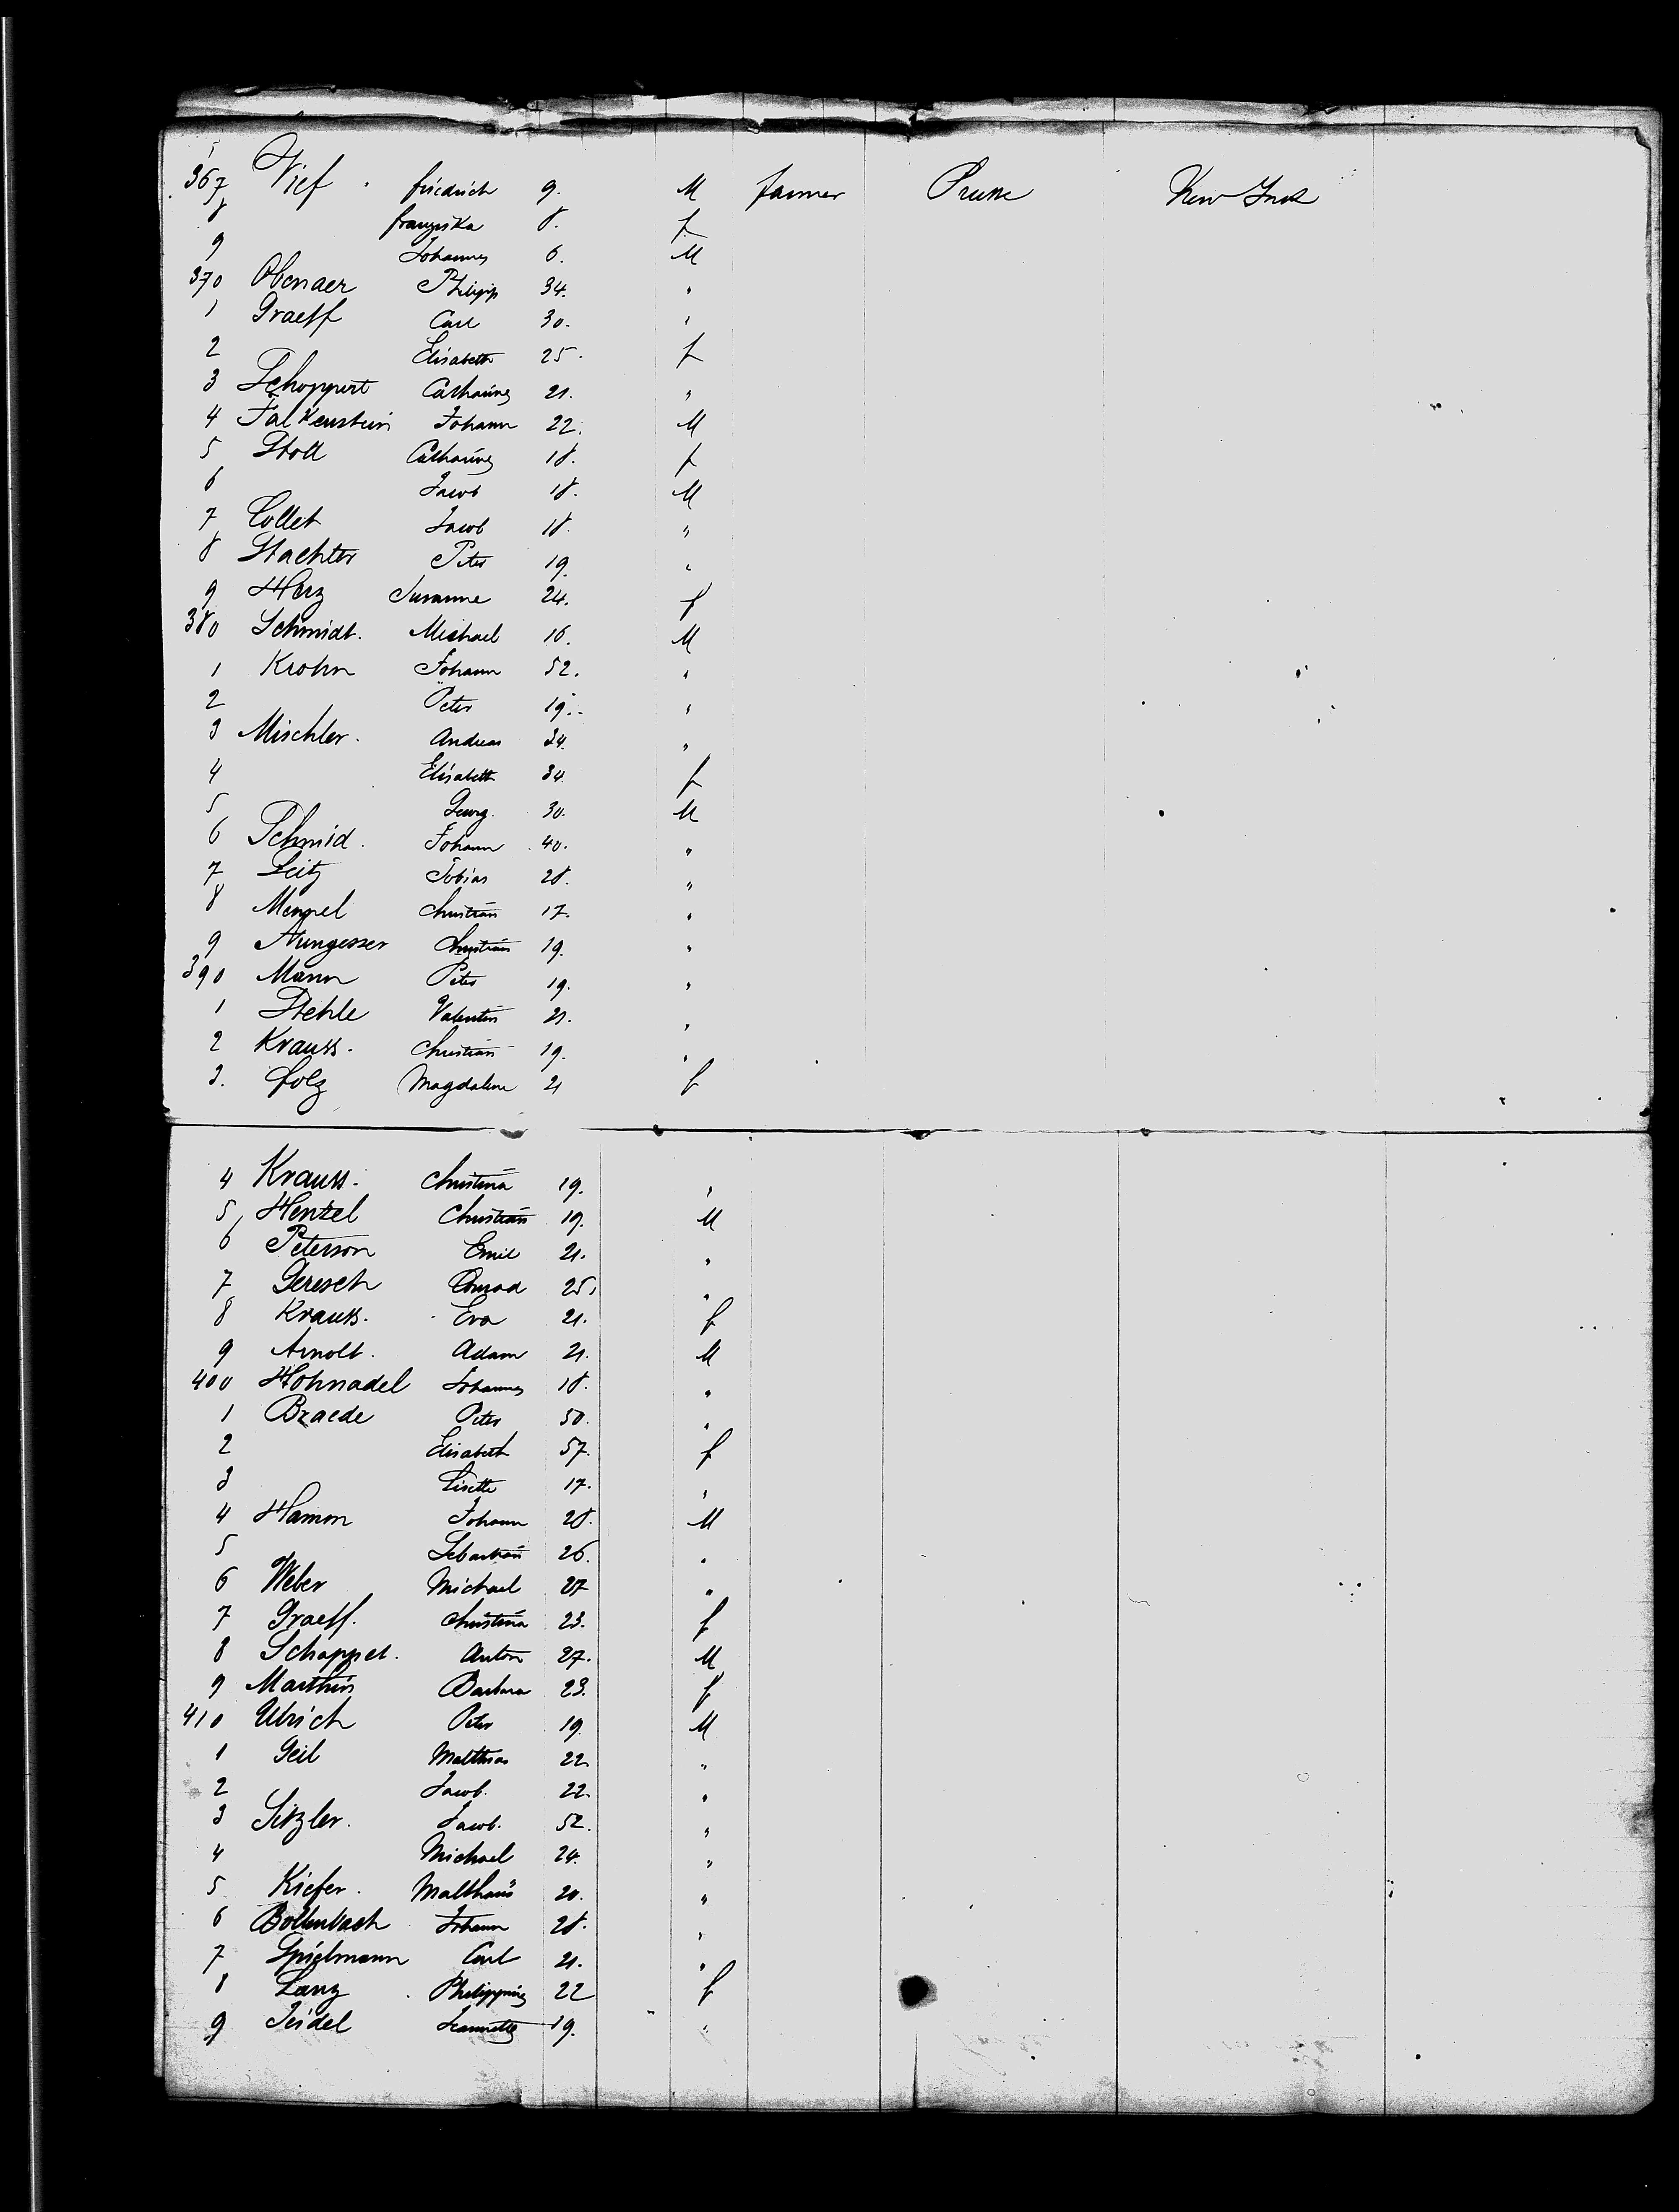 367 Vief. Friedrich 9. M farmer Prusse New York
8 Franziska 8. f
9 Johannes 6. M
370 Obenaer Philipp 34. "
1 Graeff Carl 30. "
2 Elisabeth 25. f
3 Schoppert Catharine 21. "
4 Falkenstein Johann 22. M
5 Stoll Catharine 18. f
6 Jacob 18. M
7 Collet Jacob 18. "
8 Stachter Peter 19. "
9 Herz Susanne 24. f
380 Schmidt. Michael 16. M
1 Krohn Johann 52. "
2 Peter 19. "
3 Mischler. Andreas 34. "
4 Elisabeth 34. f
5 Georg. 30. M
6 Schmid. Johann 40. "
7 Seitz Tobias 28. "
8 Menzel Christian 17. "
9 Nungesser Christian 19. "
390 Mann Peter 19. "
1 Stehle Valentin 21. "
2 Krauss. Christian 19. "
3. Folz Magdalene 21 f
4 Krauss. Christina 19. "
5 Henzel Christian 19. M
6 Peterson Emil 21. "
7 Geresch Conrad 25. "
8 Krauss. Eva 21. f
9 Arnolt. Adam 21. M
400 Hohnadel Johannes 18. "
1 Braede Peter 50. "
2 Elisabeth 57. f
3 Lisette 17. "
4 Hamm Johann 28. M
5 Sebastian 26. "
6 Weber Michael 27 "
7 Graeff. Christina 23. f
8 Schappet. Anton 27. M
9 Marthin Barbara 23. f
410 Ulrich Peter 19. M
1 Geil Matthias 22. "
2 Jacob. 22. "
3 Sitzler. Jacob. 52. "
4 Michael 24. "
5 Kiefer. Matthaus 20. "
6 Bollenbach Johann 28. "
7 Spielmann Carl 21. "
8 Lanz Philippine 22 f
9 Seidel Jeannette 19. "